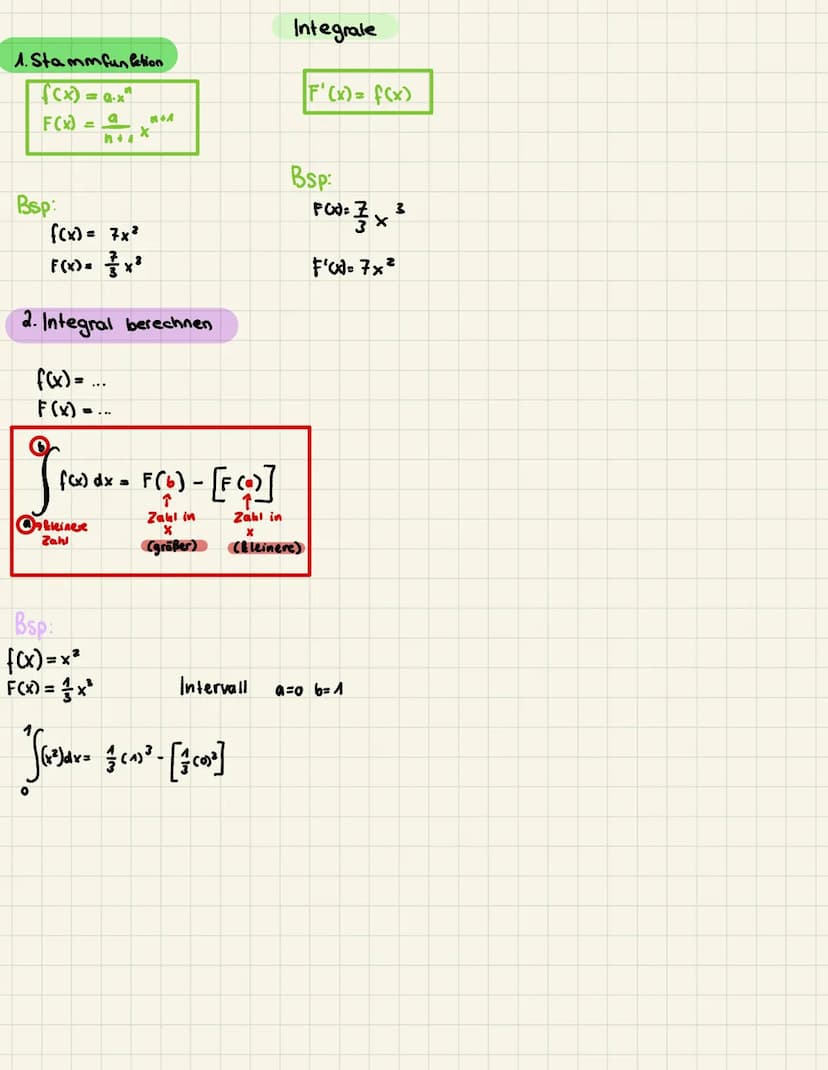 Integrale
1. Stammfunktion
f(x) = a·xⁿ
F(x) = a/(n+1) x^(n+1)
F'(x) = f(x)
Bsp:
f(x) = 7x²
F(x) = 7/3 x³
Bsp:
F(x) = 7/3 x³
F'(x) = 7x²
2. Integral berechnen
f(x) = ...
F(x) = ...
b
∫ f(x) dx = F(b) - [F(a)]
a → kleinere Zahl
↑ Zahl in x (größer)
↑ Zahl in x (kleinere)
Bsp:
f(x) = x²
F(x) = 1/3 x³
Intervall a=0 b=1
1
∫(x²)dx = 1/3 (1)³ - [1/3 (0)³]
0